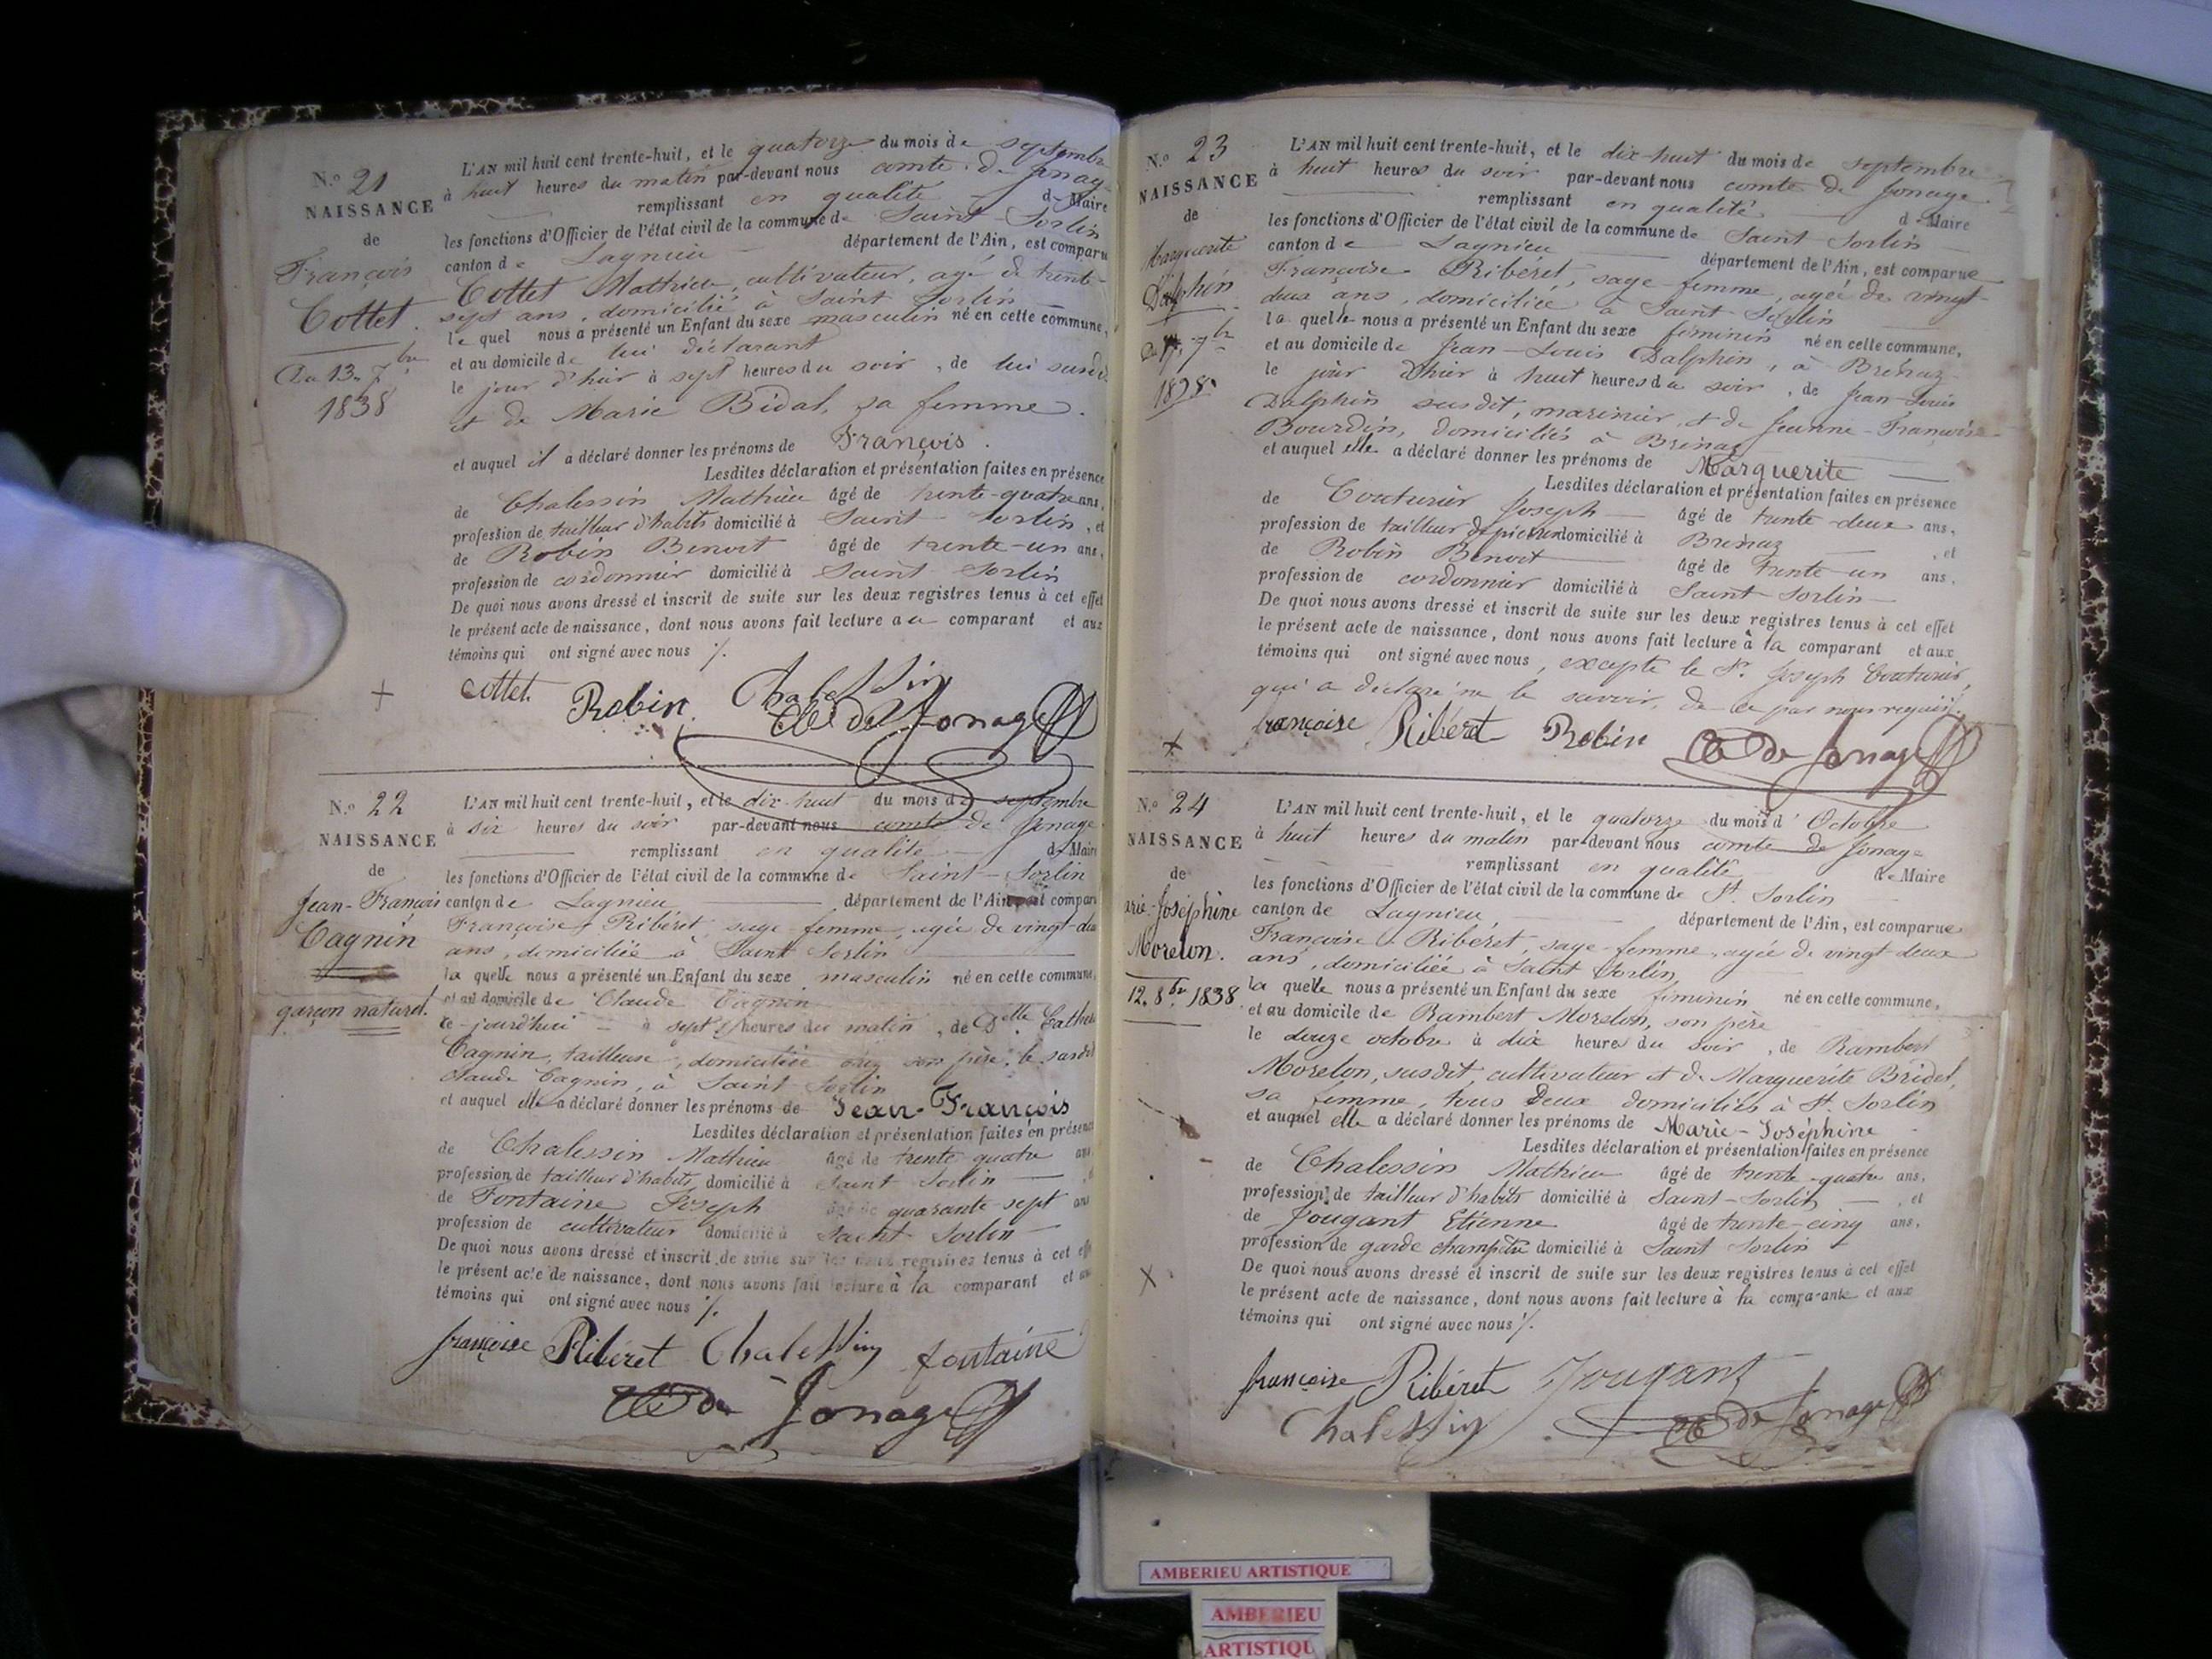 N.o 21
NAISSANCE
de
François
Cottet.
Du 13. 7bre
1838
L'AN mil huit cent trente-huit, et le quatorze du mois de septembre
à huit heures du matin par-devant nous comte de Jonage
remplissant en qualité de Maire
les fonctions d'Officier de l'état civil de la commune de Saint-Sorlin
canton de Lagnieu département de l'Ain, est comparu
Cottet Mathieu, cultivateur, agé de trente-
sept ans, domicilié à Saint Sorlin
le quel nous a présenté un Enfant du sexe masculin né en cette commune,
et au domicile de lui déclarant
le jour d'hier à sept heures du soir, de lui susdit
et de Marie Bidal, sa femme.
et auquel il a déclaré donner les prénoms de François.
Lesdites déclaration et présentation faites en présence
de Chalessin Mathieu âgé de trente-quatre ans,
profession de tailleur d'habits domicilié à Saint Sorlin, et
de Robin Benoit âgé de trente-un ans,
profession de cordonnier domicilié à Saint Sorlin
De quoi nous avons dressé et inscrit de suite sur les deux registres tenus à cet effet
le présent acte de naissance, dont nous avons fait lecture au comparant et aux
témoins qui ont signé avec nous ./.
Cottet. Robin Chalessin
Cte de Jonage
N.o 22
NAISSANCE
de
Jean-François
Cagnin
garçon naturel.
L'AN mil huit cent trente-huit, et le dix-huit du mois de septembre
à six heures du soir par-devant nous comte de Jonage
remplissant en qualité de Maire
les fonctions d'Officier de l'état civil de la commune de Saint-Sorlin
canton de Lagnieu département de l'Ain, est comparu
Françoise Ribéret, sage-femme, agée de vingt-deux
ans, domiciliée à Saint Sorlin
la quelle nous a présenté un Enfant du sexe masculin né en cette commune,
et au domicile de Claude Cagnin
ce-jourd'hui à sept heures du matin, de Delle
Cagnin, tailleuse, domiciliée chez son père, le susdit
Claude Cagnin, à Saint-Sorlin
et auquel elle a déclaré donner les prénoms de Jean-François
Lesdites déclaration et présentation faites en présence
de Chalessin Mathieu âgé de trente quatre ans,
profession de tailleur d'habits domicilié à Saint Sorlin
de Fontaine Joseph âgé de quarante-sept ans
profession de cultivateur domicilié à Saint-Sorlin
De quoi nous avons dressé et inscrit de suite sur les deux registres tenus à cet effet
le présent acte de naissance, dont nous avons fait lecture à la comparant et aux
témoins qui ont signé avec nous ./.
françoise Ribéret Chalessin fontaine
Cte de Jonage
N.o 23
NAISSANCE
de
Marguerite
Dalphin
Du 17. 7bre
1838.
L'AN mil huit cent trente-huit, et le dix-huit du mois de septembre
à huit heures du soir par-devant nous comte de Jonage
remplissant en qualité de Maire
les fonctions d'Officier de l'état civil de la commune de Saint-Sorlin
canton de Lagnieu département de l'Ain, est comparue
Françoise Ribéret, sage-femme, agée de vingt-
deux ans, domiciliée à Saint Sorlin
la quelle nous a présenté un Enfant du sexe féminin né en cette commune,
et au domicile de Jean-Louis Dalphin, à Brénaz
le jour d'hier à huit heures du soir, de Jean-Louis
Dalphin susdit, marinier, et de Jeanne-Françoise
Bourdin, domiciliés à Brénaz
et auquel elle a déclaré donner les prénoms de Marguerite
Lesdites déclaration et présentation faites en présence
de Couturier Joseph âgé de trente-deux ans,
profession de tailleur de pierre domicilié à Brénaz, et
de Robin Benoit âgé de trente-un ans,
profession de cordonnier domicilié à Saint-Sorlin
De quoi nous avons dressé et inscrit de suite sur les deux registres tenus à cet effet
le présent acte de naissance, dont nous avons fait lecture à la comparant et aux
témoins qui ont signé avec nous, excepté le Sr. Joseph Couturier,
qui a déclaré ne le savoir, de ce par nous requis.
françoise Ribéret Robin Cte de Jonage
N.o 24
NAISSANCE
de
arie-Joséphine
Morelon.
12. 8bre 1838.
L'AN mil huit cent trente-huit, et le quatorze du mois d'Octobre
à huit heures du matin par-devant nous comte de Jonage
remplissant en qualité de Maire
les fonctions d'Officier de l'état civil de la commune de St. Sorlin
canton de Lagnieu, département de l'Ain, est comparue
Françoise Ribéret, sage-femme, agée de vingt deux
ans, domiciliée à Saint Sorlin
la quelle nous a présenté un Enfant du sexe féminin né en cette commune,
et au domicile de Rambert Morelon, son père
le douze octobre à dix heures du soir, de Rambert
Morelon, susdit, cultivateur et de Marguerite Bridel,
sa femme, tous deux domiciliés à St. Sorlin
et auquel elle a déclaré donner les prénoms de Marie-Joséphine
Lesdites déclaration et présentation faites en présence
de Chalessin Mathieu âgé de trente-quatre ans,
profession de tailleur d'habits domicilié à Saint-Sorlin, et
de Jougant Etienne âgé de trente-cinq ans,
profession de garde champêtre domicilié à Saint Sorlin
De quoi nous avons dressé et inscrit de suite sur les deux registres tenus à cet effet
le présent acte de naissance, dont nous avons fait lecture à la comparante et aux
témoins qui ont signé avec nous ./.
françoise Ribéret Jougant
Chalessin Cte de Jonage
AMBERIEU ARTISTIQUE
AMBERIEU
ARTISTIQU